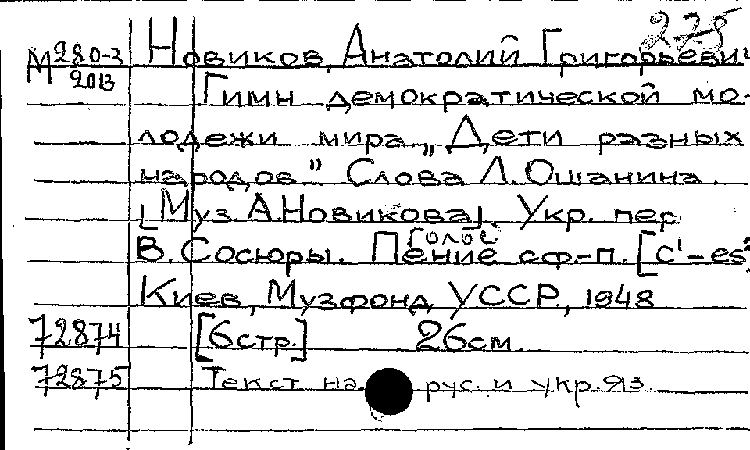 275
М280-3 Новиков, Анатолий Григорьевич
2013
Гимн демократической мо-
лодежи мира „Дети разных
народов" Слова Л.Ошанина.
[Муз А.Новикова]. Укр. пер
В. Сосюры. Пение сф-п. [c'-es²
голос
Киев, Музфонд УССР, 1948
72874 [6стр.] 26см.
72875 Текст на рус. и укр.яз